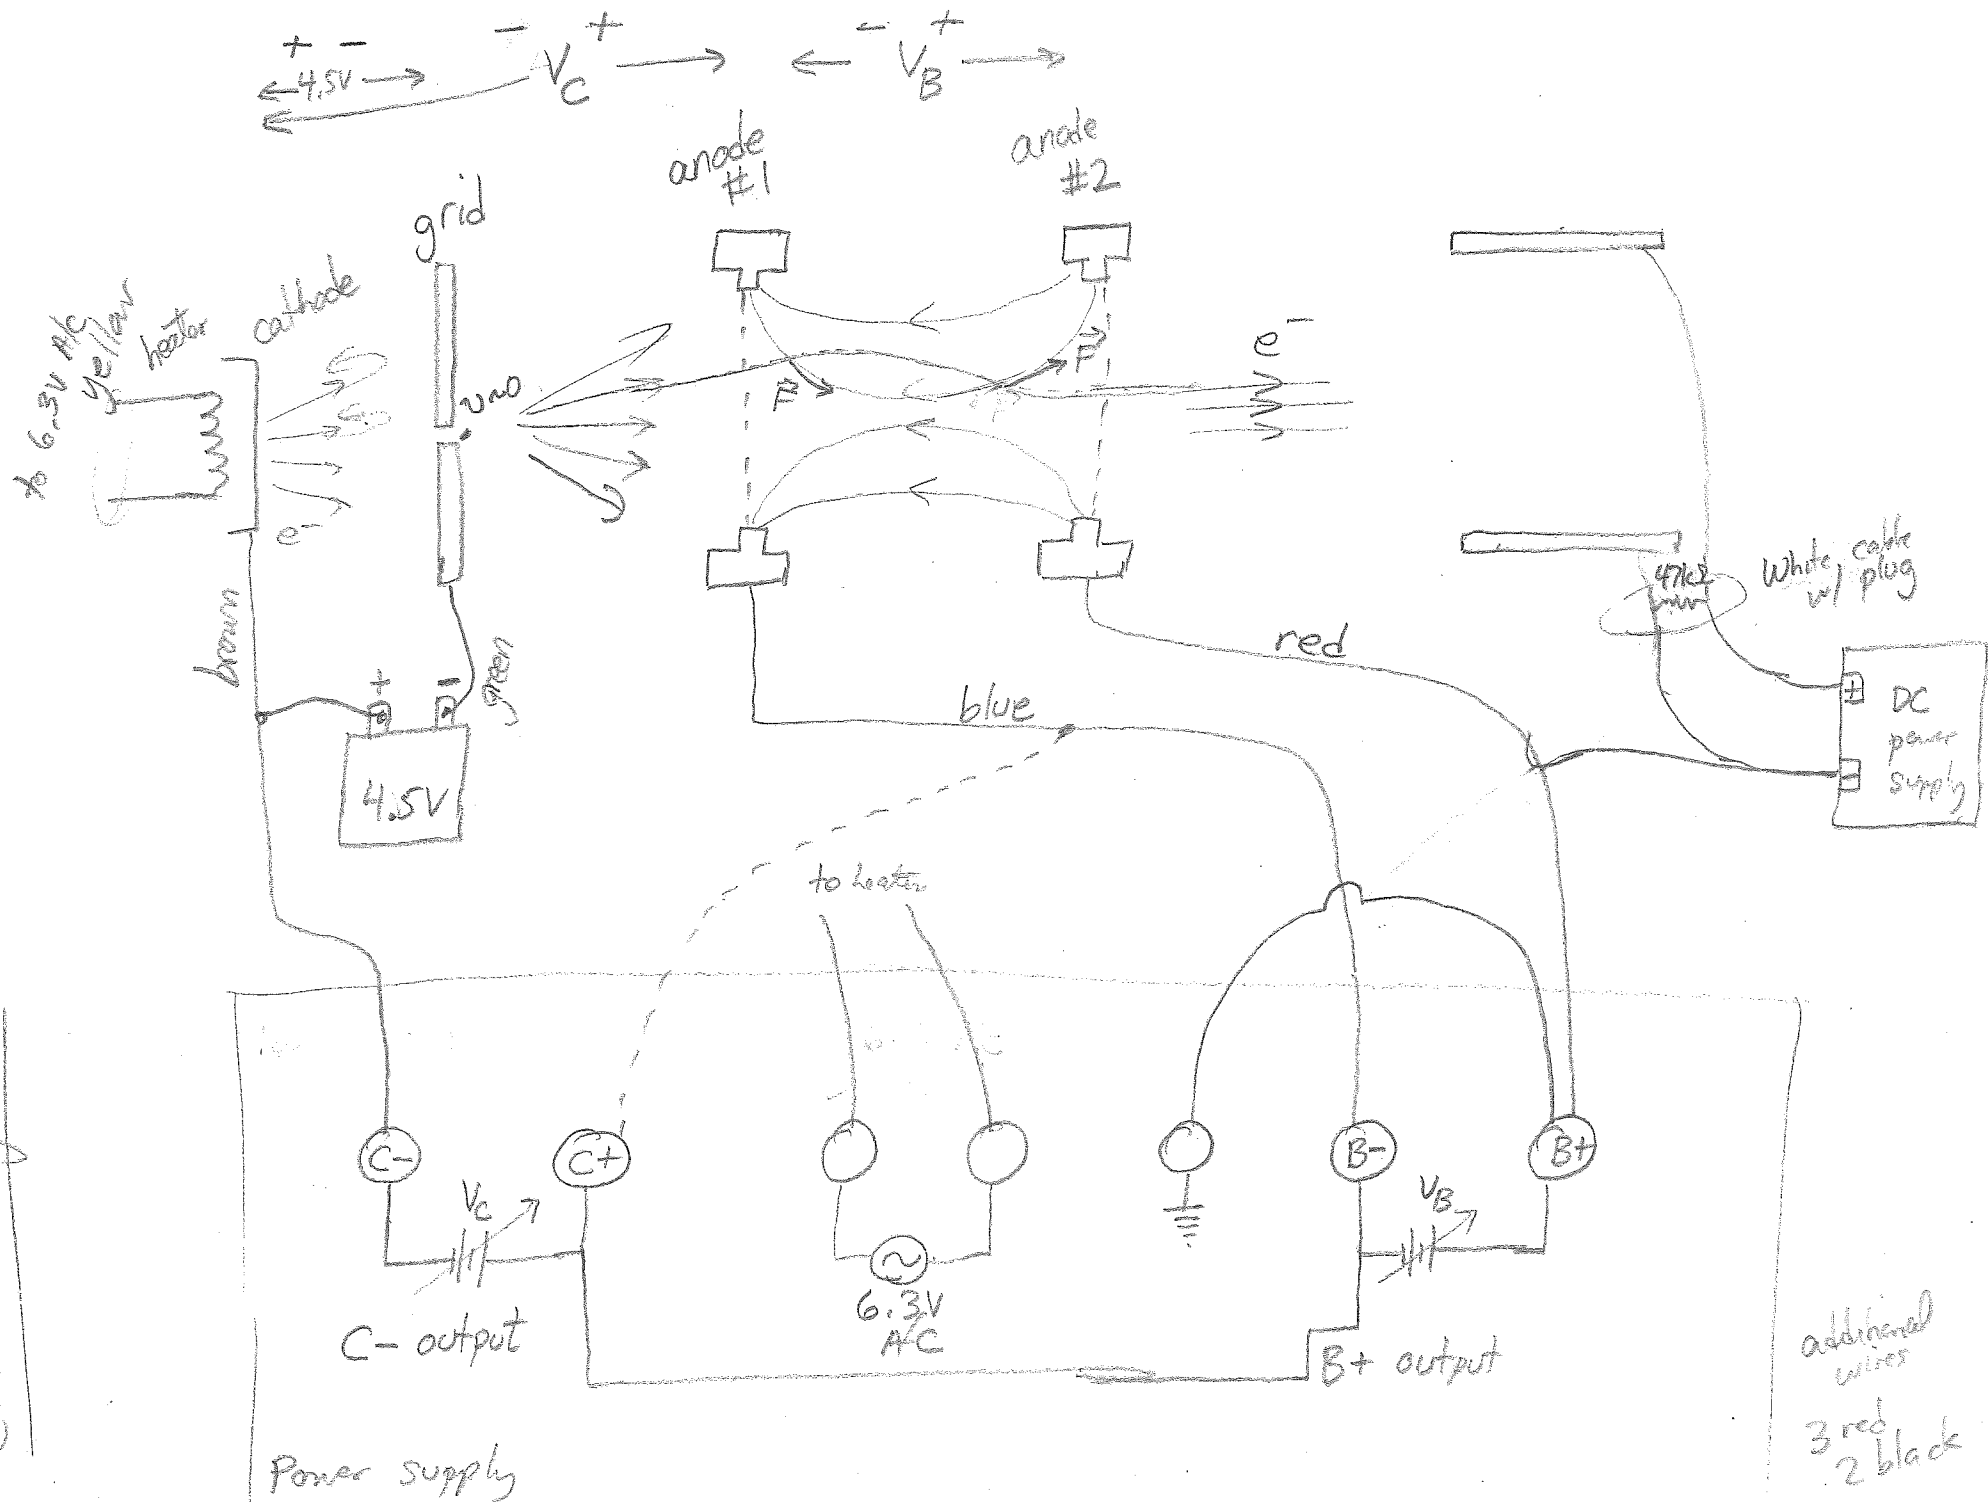 + -
4.5V
- V_C +
- V_B +
anode
#1
anode
#2
grid
cathode
heater
to 6.3V A/C
yellow
v~0
F
F
e-
e-
brown
green
+
-
4.5V
blue
red
47kΩ
White cable
w/ plug
+
-
DC
power
supply
to heater
C-
C+
B-
B+
V_C
V_B
6.3V
A/C
C- output
B+ output
Power supply
additional
wires
3 red
2 black